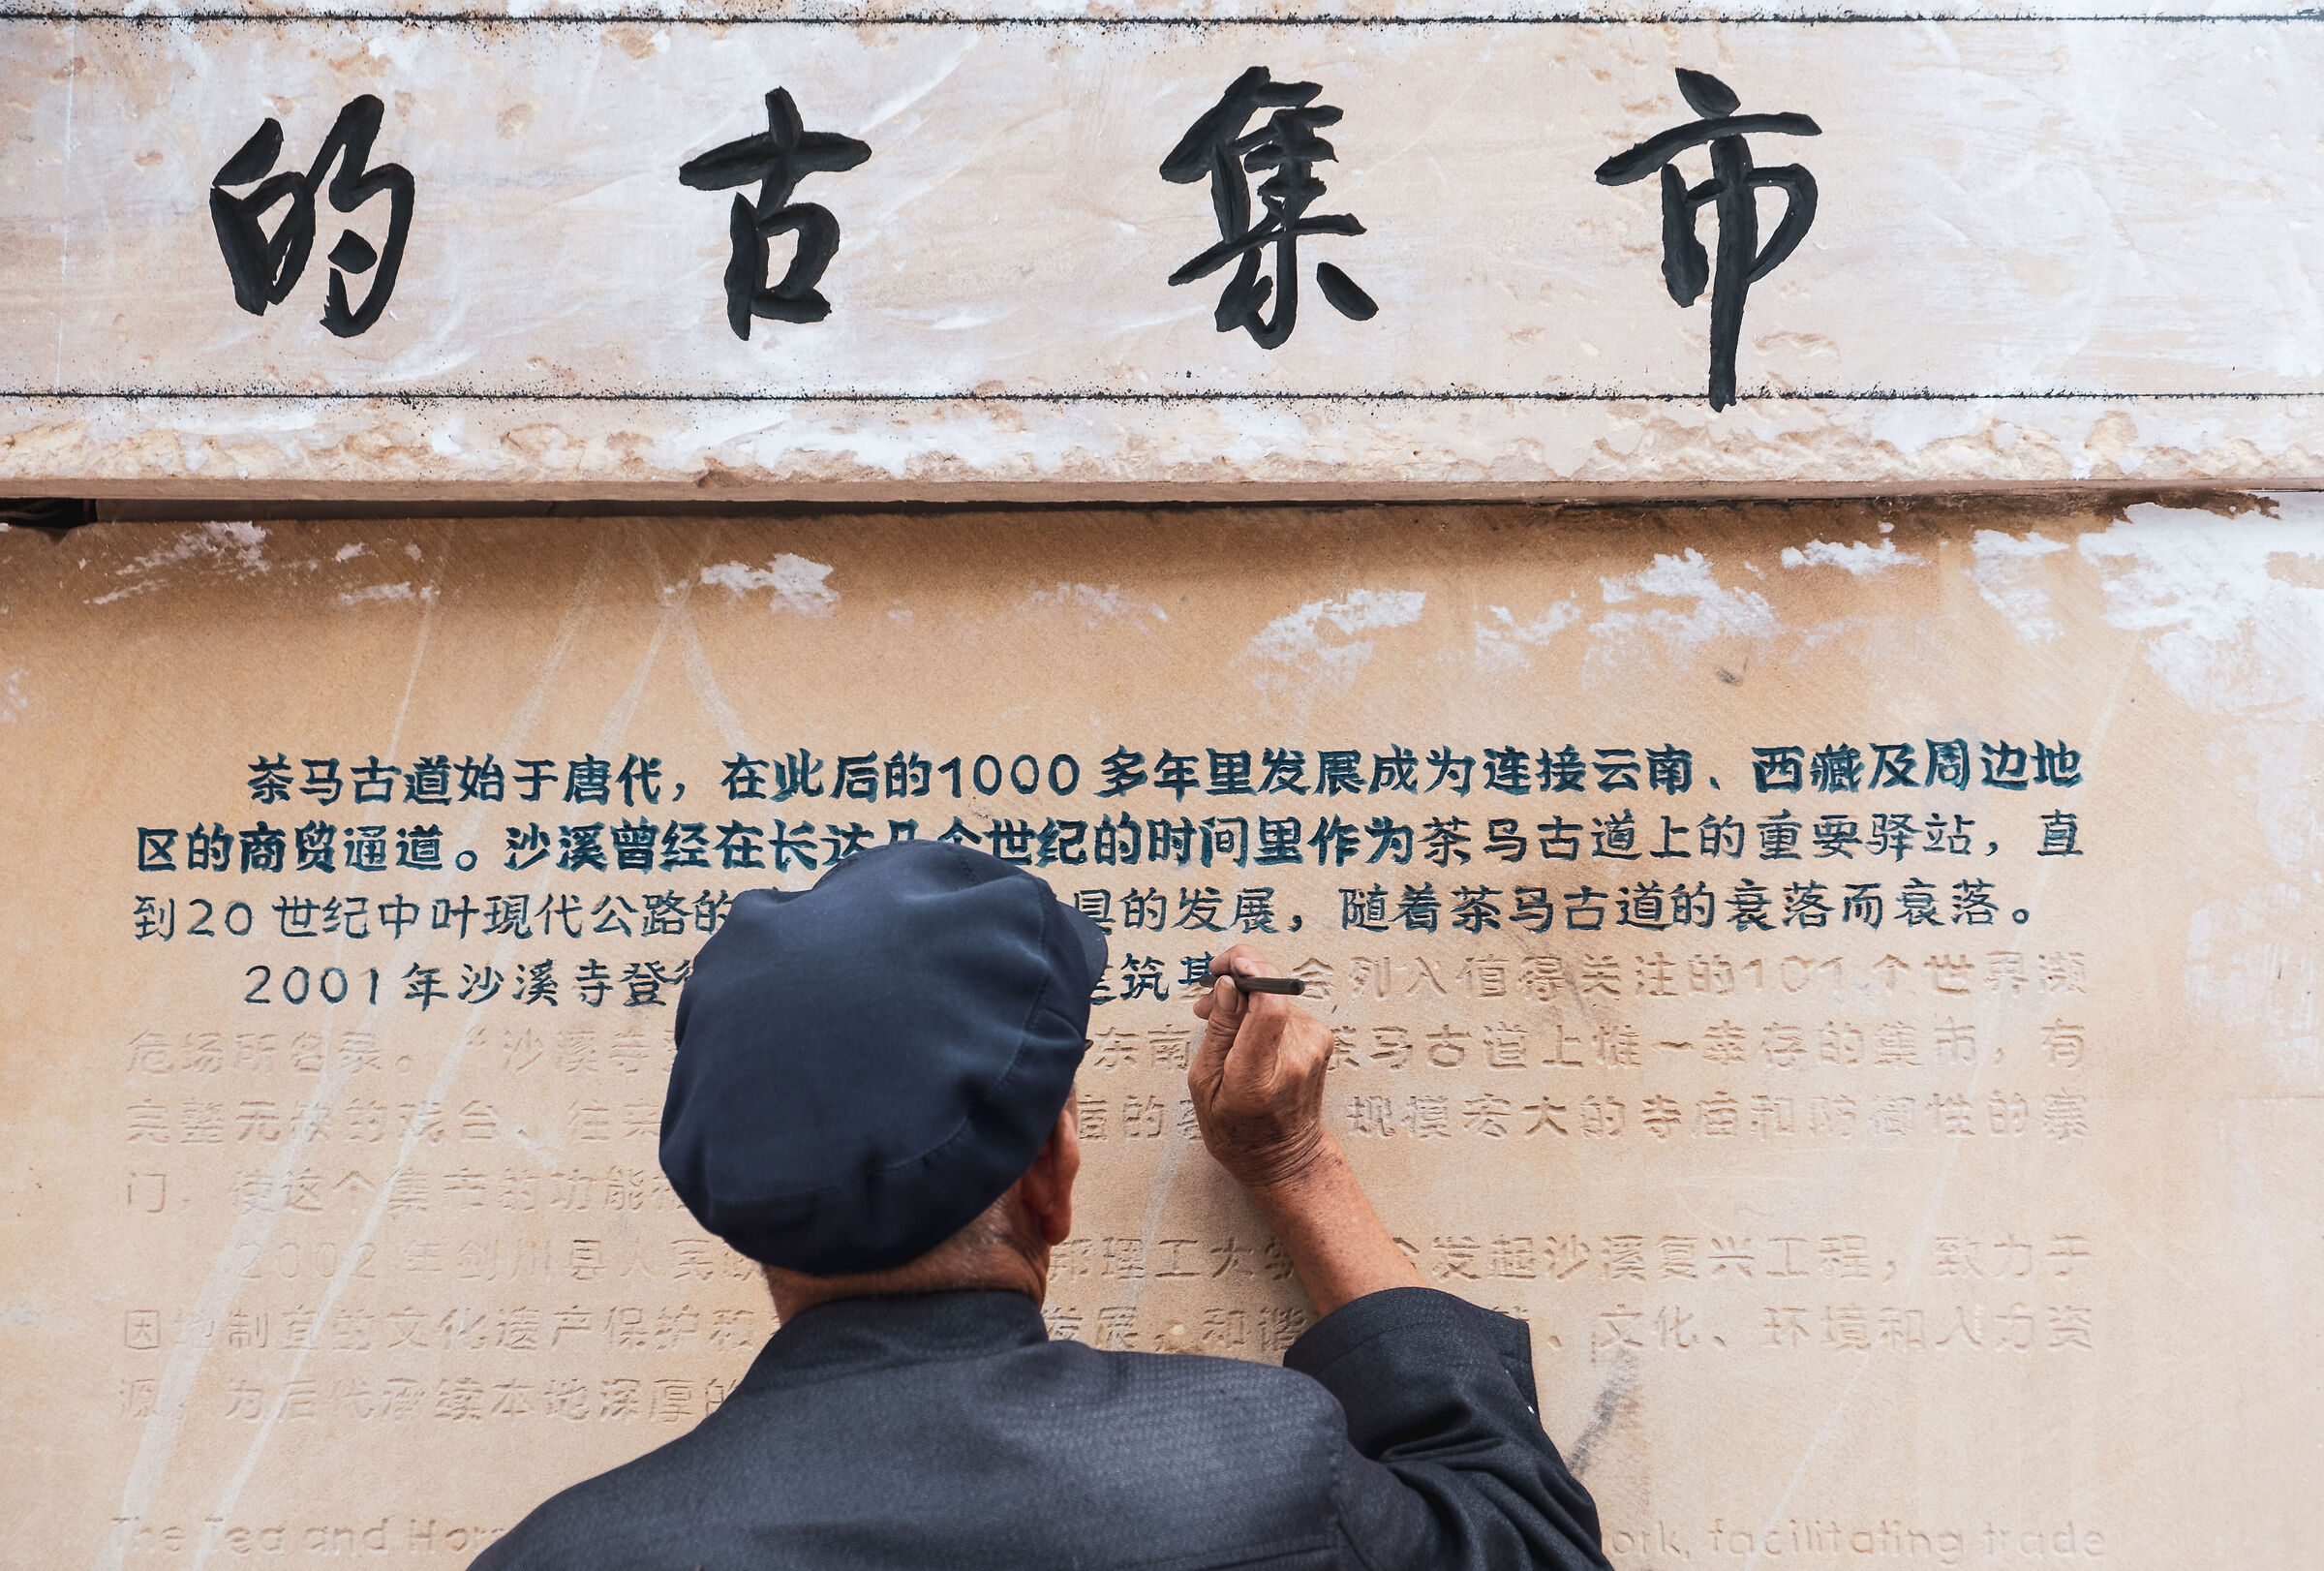 的古集市
茶马古道始于唐代，在此后的1000多年里发展成为连接云南、西藏及周边地
区的商贸通道。沙溪曾经在长达几个世纪的时间里作为茶马古道上的重要驿站，直
到20世纪中叶现代公路的 具的发展，随着茶马古道的衰落而衰落。
2001年沙溪寺登 建筑基 会列入值得关注的101个世界濒
危场所名录。“沙溪寺 东南 茶马古道上惟一幸存的集市，有
完整无缺的戏台、往来 规模宏大的寺庙和防御性的寨
门，使这个集市的功能
2002年剑川县人民 邦理工大学 发起沙溪复兴工程，致力于
因地制宜的文化遗产保护和 发展，和谐 、文化、环境和人力资
源，为后代承续本地深厚的
The Tea and Hor ork, facilitating trade